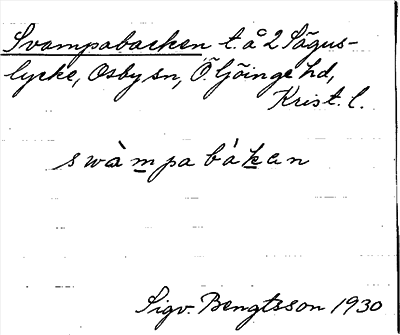 Svampabacken t. å 2 Sågus-
lycke, Osby sn, Ö. Göinge hd,
Krist. l.
swàm̲pabák̲an
Sigv. Bengtsson 1930